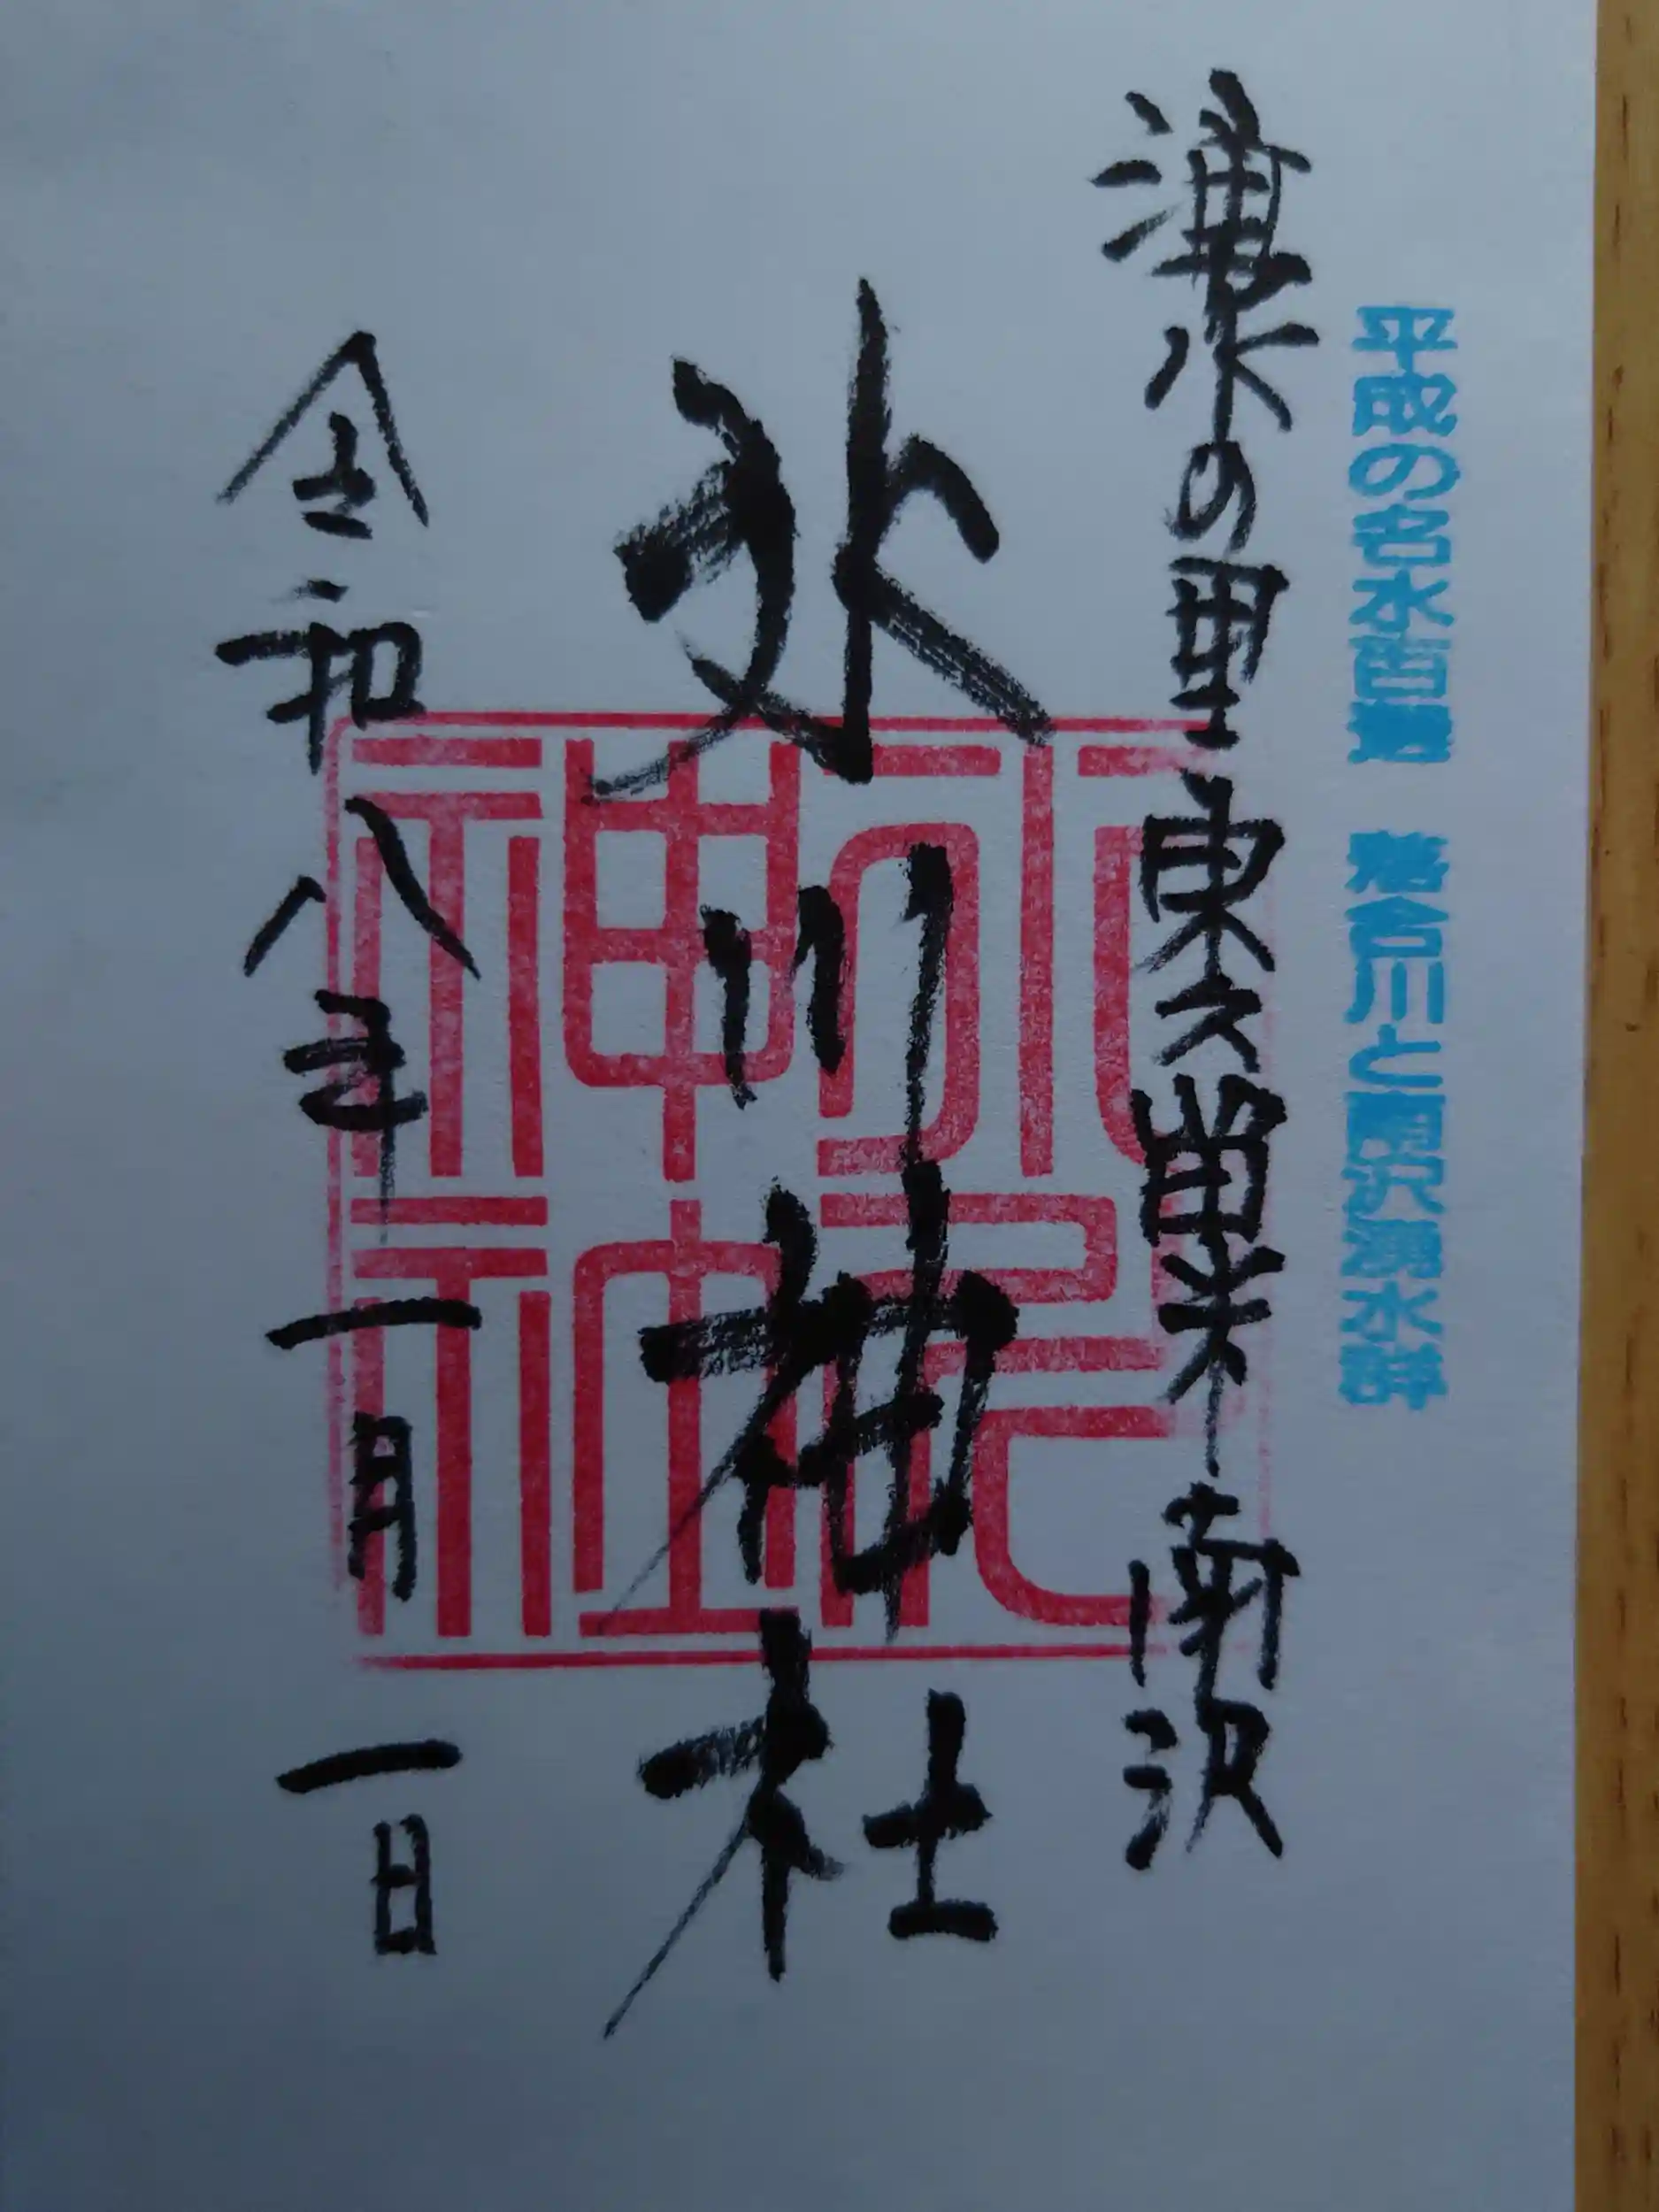 平成の名水百選 落合川と南沢湧水群
湧水の里 東久留米 南沢
氷川神社
令和八年一月一日
氷川
神社